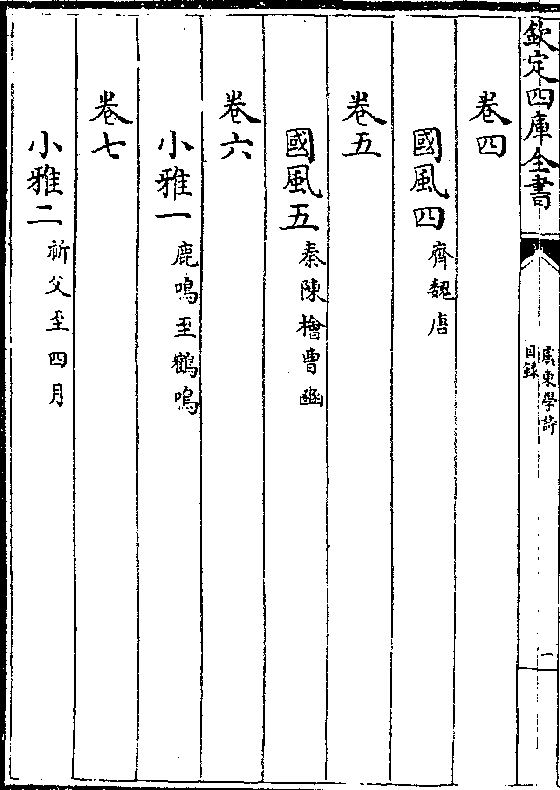 欽定四庫全書
虞東學詩
目錄
一
卷四
國風四 齊魏唐
卷五
國風五 秦陳檜曹豳
卷六
小雅一 鹿鳴至鶴鳴
卷七
小雅二 祈父至四月